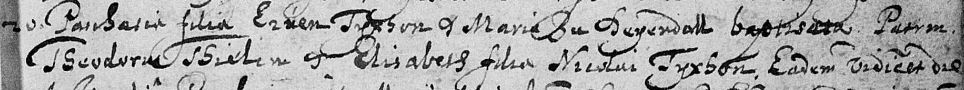 20. Paschasia filia Eruen Tyxhon & Maria Du Heyendall baptisata. Patrin.
Theodorus Thielen & Elisabeth filia Nicolai Tyxhon, Eadem Videlicet die